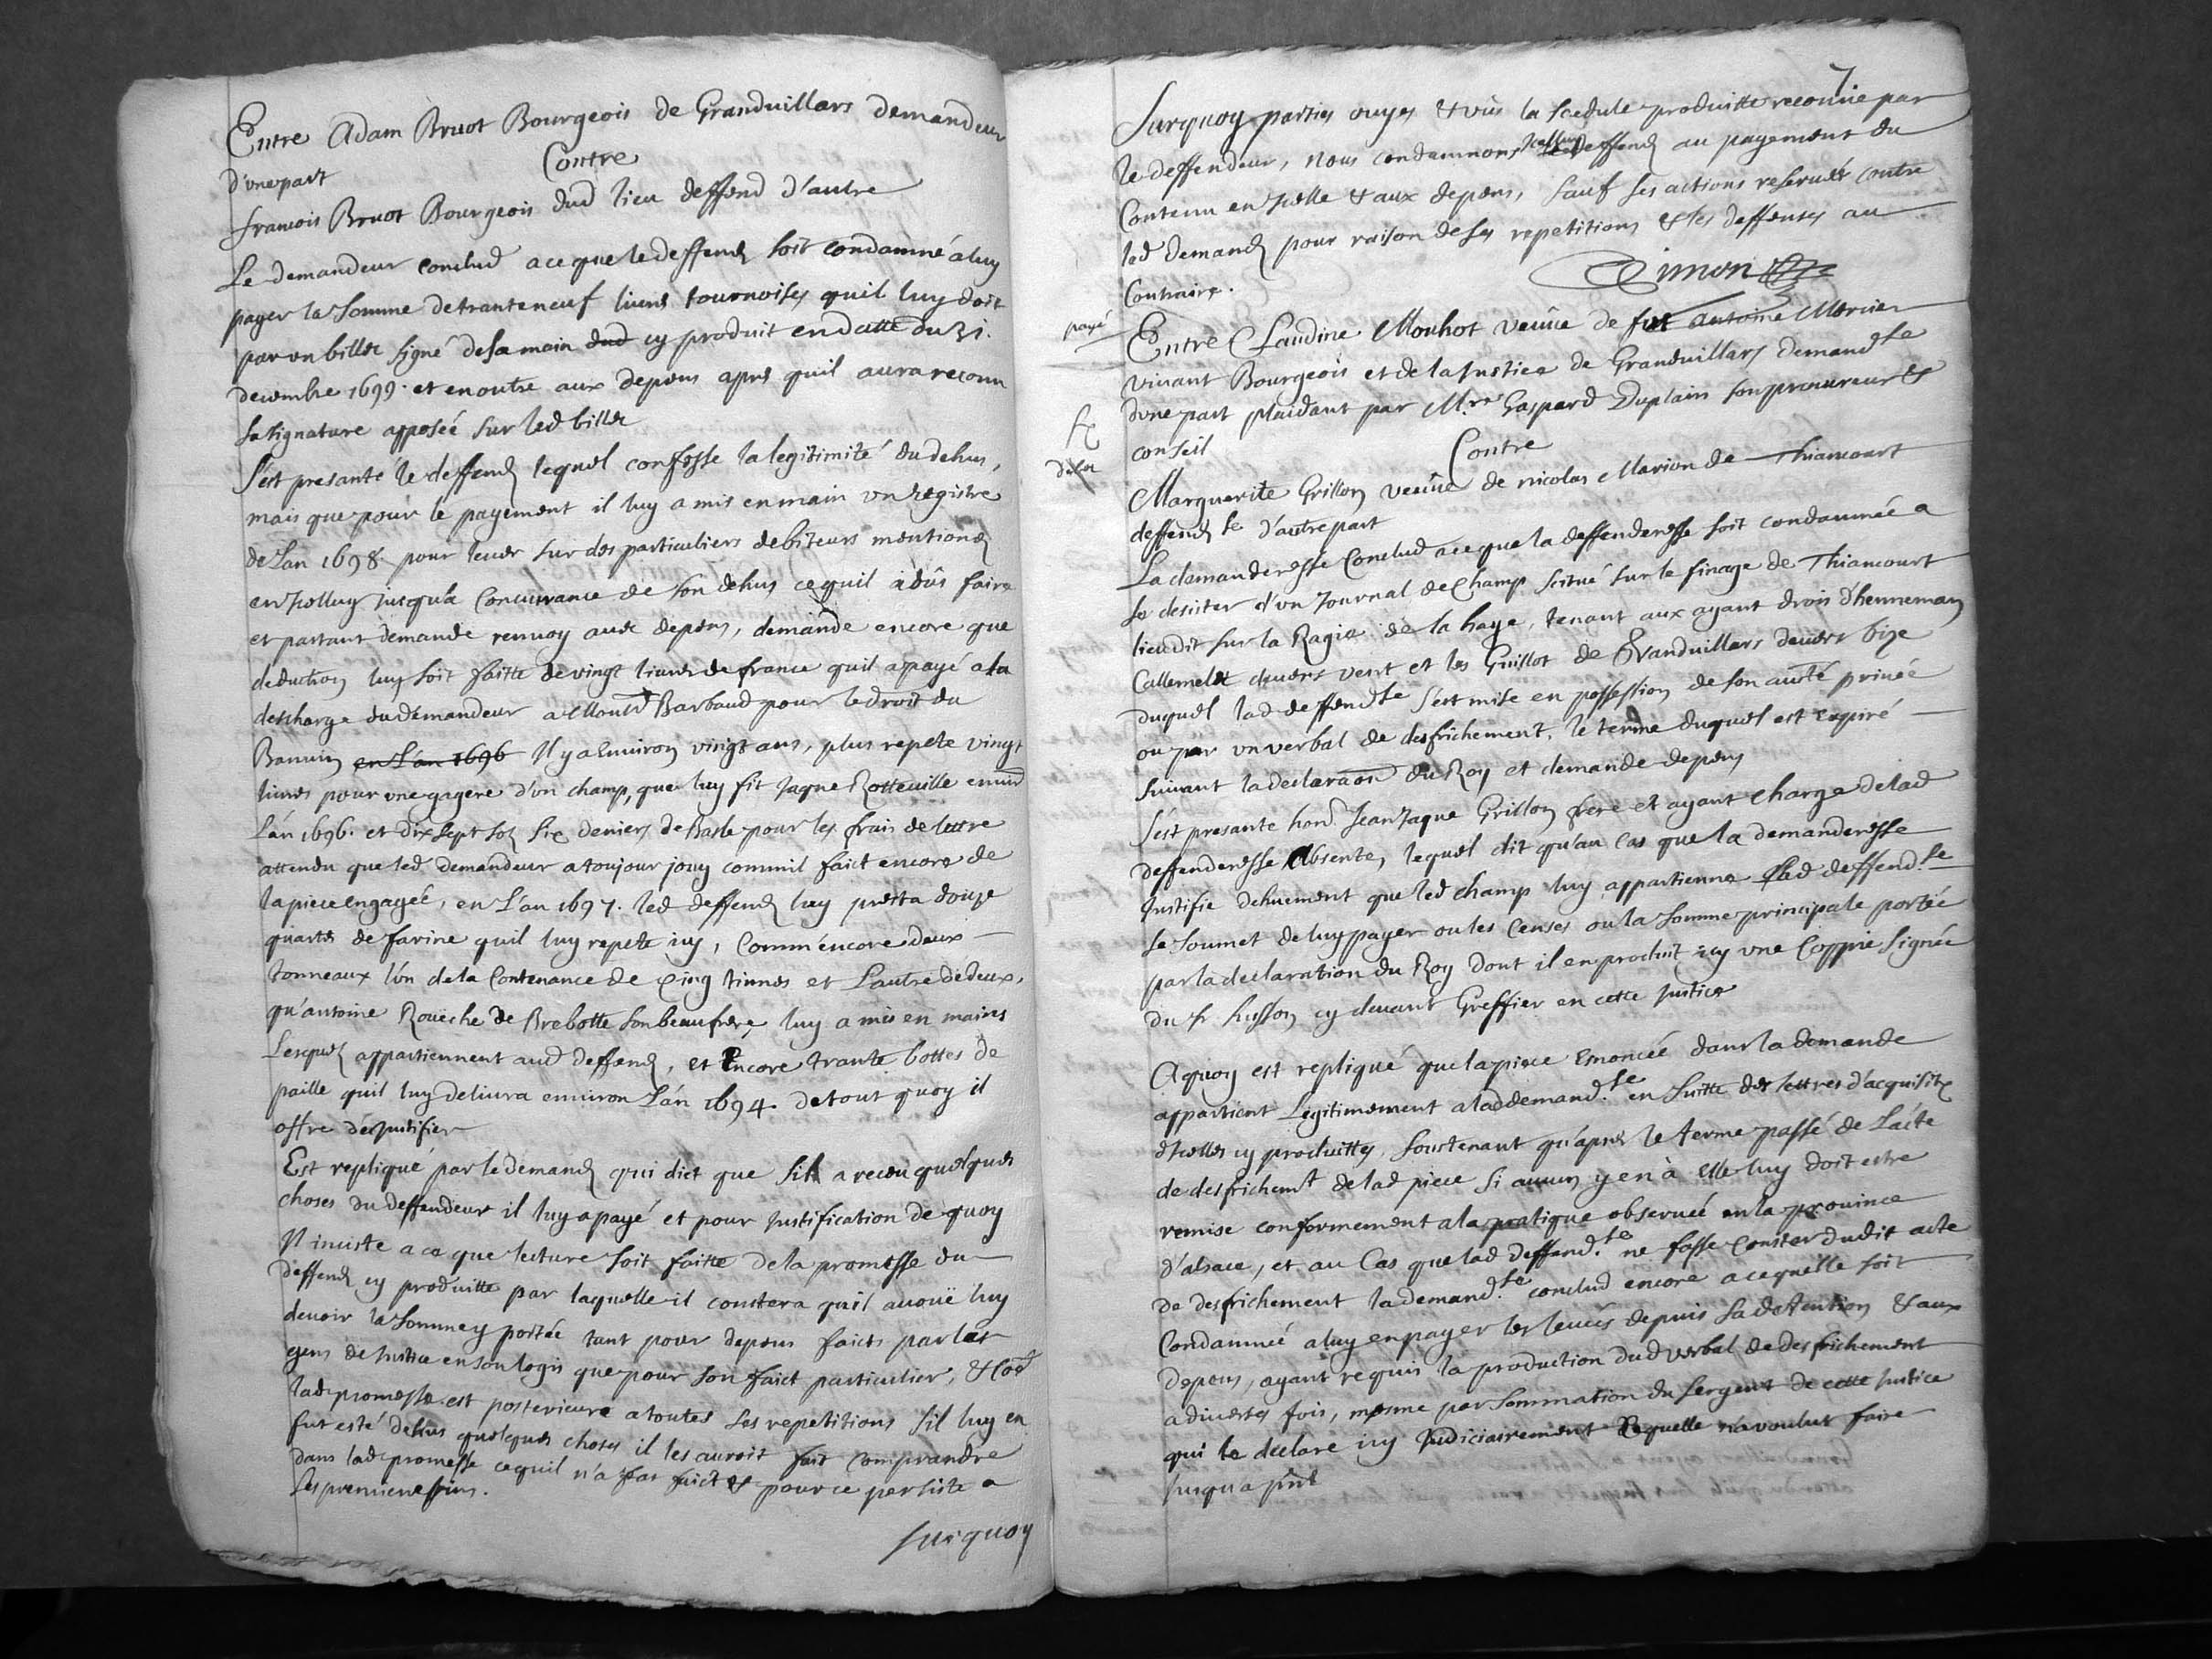 Entre Adam Bruot Bourgeois de Granduillars demandeur
d'une part
Contre
francois Bruot Bourgeois dud lieu deffend d'autre
Le demandeur conclud a ce que le deffend soit condamné à luy
payer la somme de trante neuf liures tournoises quil luy doit
par un billet signé de sa main dud cy produit en datte du 21.
decembre 1699. et en outre aux depens aprés quil aura reconu
sa signature apposée sur led billet
S'est presanté le deffend lequel confesse la legitimité du dehus,
mais que pour le payement il luy a mis en main vn registre
de L'an 1698. pour leuer sur des particuliers debiteurs mentionés
en jcelluy jusqu'à concurrance de son dehus ce quil à dûs faire
et partant demande renuoy auec depens, demande encore que
deduction luy soit faitte de vingt liures de france quil a payé a la
descharge du demandeur a Mons.r Barbaud pour le droit du
Banuin en L'an 1696 Il y a Enuiron vingt ans, plus repete vingt
liures pour vne gagere d'vn champ, que luy fit Jaque Rotteuille enuiron
L'an 1696. et dix sept sols six deniers de Basle pour les frais de lettre
attendu que led demandeur a toujour jouy comm'il faict encore de
la piece engagée, en L'an 1697. led deffend luy presta douze
quartes de farine quil luy repete icy, comm'encore deux
tonneaux l'vn de la Contenance de cinq tinnes et L'autre de deux,
qu'antoine Roueche de Brebotte son beaufrere, luy a mis en mains
Lesquels appartiennent aud deffend, et Encore trante bottes de
paille quil luy deliura enuiron L'an 1694. de tout quoy il
offre de justifier
Est repliqué par le demand qui dict que s'il a receu quelques
choses du deffendeur il luy a payé et pour justification de quoy
Il inciste a ce que lecture soit faitte de la promesse du
deffend cy produitte par laquelle il constera quil auouë luy
deuoir la somme y portée tant pour depens faicts par les
gens de justice en son logis que pour son faict particulier, & co͞e
lad promesse est posterieure a toutes ses repetitions s'il luy en
fut esté dehus quelques choses il les auroit fait comprandre
dans lad promesse ce quil n'a pas faict & pour ce persiste a
ses premieres fins.
surquoy
7
Surquoy parties ouyes & vus la scedule produitte reconüe par
le deffendeur, nous condamnons jcelluy led deffend au payement du
Contenu en jcelle & aux depens, sauf ses actions reseruées contre
led demand pour raison de ses repetitions & les deffenses au
Contraire.
Simon
payé
Entre Claudine Mouhot veuüe de fut antoine Mercier
viuant Bourgeois et de la justice de Granduillars demand.se
d'vne part plaidant par M.re Gaspard Duplain son procureur &
conseil
Contre
Marguerite Grillon veuüe de nicolas Marion de Thiancourt
deffend.se d'autre part
La demanderesse Conclud a ce que la deffenderesse soit condamnée a
se desister d'vn journal de champ scitué sur le finage de Thiancourt
lieu dit sur la Ragie de la haye, tenant aux ayant droit d'henneman
Callemelet deuers vent et les Guillot de Granduillars deuers bize
duquel lad deffend.se s'est mise en possession de son auth.té priuée
ou par vn verbal de desfrichement, le terme duquel est expiré
suiuant la declaraon du Roy et demande depens
S'est presanté hon. Jean Jaque Grillon frere et ayant charge de lad
deffenderesse Absente, lequel dit qu'au cas que la demanderesse
justifie dehuement que led champ luy appartienne lad deffend.se
se soumet de luy payer ou les Censes ou la somme principale portée
par la declaration du Roy dont il en produit icy vne Coppie signée
du s.r husson cy deuant Greffier en cette justice
A quoy est repliqué que la piece Enoncée dans la demande
appartient Legitimement a lad demand.se en suitte des lettres d'acquisit.
d'jcelles cy produittes, soustenant qu'apres le terme passé de L'acte
de desfrichem.t de lad piece si aucun y en à elle luy doit estre
remise conformement a la pratique obseruée en la prouince
d'alsace, et au cas que lad deffend.se ne fasse conster dudit acte
de desfrichement la demand.se conclud encore a ce quelle soit
Condamnée a luy en payer les leuées depuis sa detention & aux
depens, ayant requis la production dud verbal de desfrichement
a diuerses fois, mesme par sommation du sergent de cette justice
qui le declare icy Judiciairement Ce quelle n'a voulut faire
jusqu'a pnt